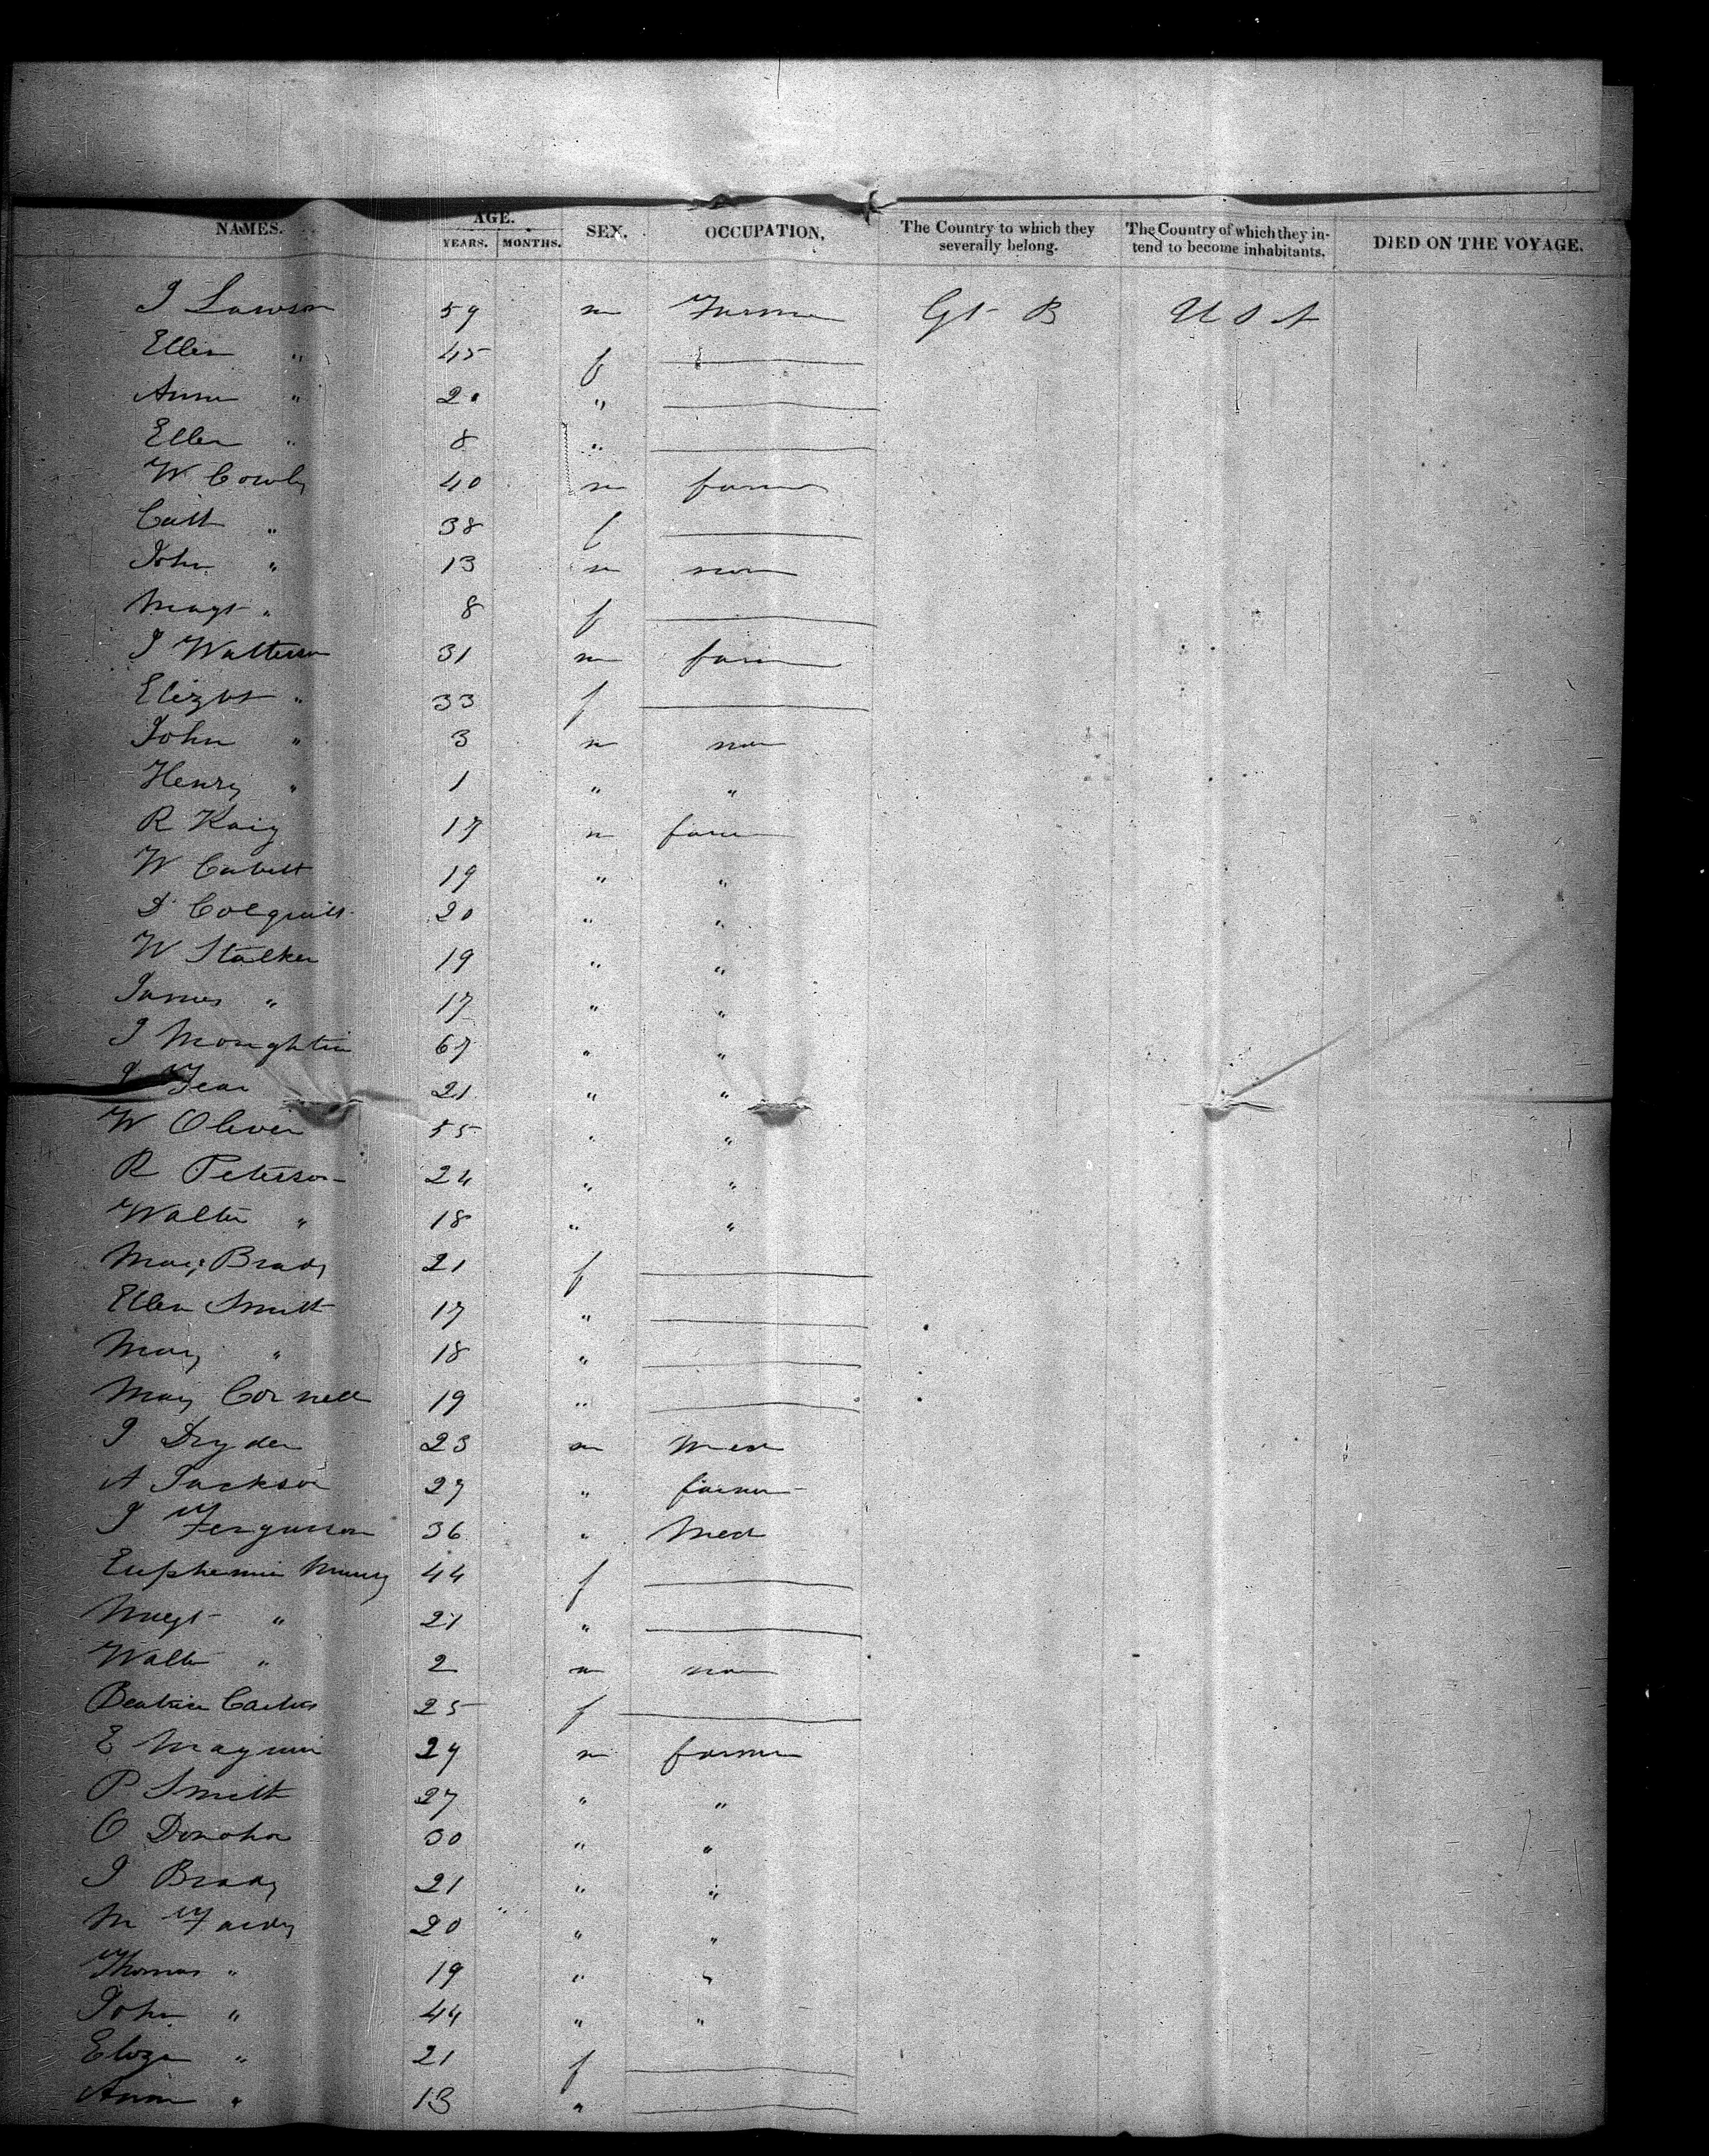 NAMES. AGE. YEARS. MONTHS. SEX. OCCUPATION. The Country to which they severally belong. The Country of which they intend to become inhabitants. DIED ON THE VOYAGE.
J Lawson 59 m Farmer Gt B U S A
Ellen " 45 f
Anne " 20 "
Ellen " 8 "
W Cowly 40 m farmer
Cath " 38 f
John " 13 m non
Magt " 8 f
J Watterson 31 m farmer
Elizbt " 33 f
John " 3 m non
Henry " 1 " "
R Kaig 17 m farmer
W 19 " "
D Colquitt 20 " "
W Stalker 19 " "
James " 17 " "
J Moughtin 67 " "
21 " "
W Oliver 55 " "
R Peterson 24 " "
Walter " 18 " "
Mary Brady 21 f
Ellen Smith 17 "
Mary " 18 "
Mary Cornell 19 "
J Dryden 23 m Mech
A Jackson 27 " farmer
J Fergusson 36 " Mech
Euphemia Murry 44 f
Magt " 21 "
Walter " 2 m non
Beatrice 25 f
E Maguire 24 m farmer
P Smith 27 " "
O Donohoe 30 " "
J Brady 21 " "
M 20 " "
Thomas " 19 " "
John " 44 " "
Eliza " 21 f
Anne " 13 "